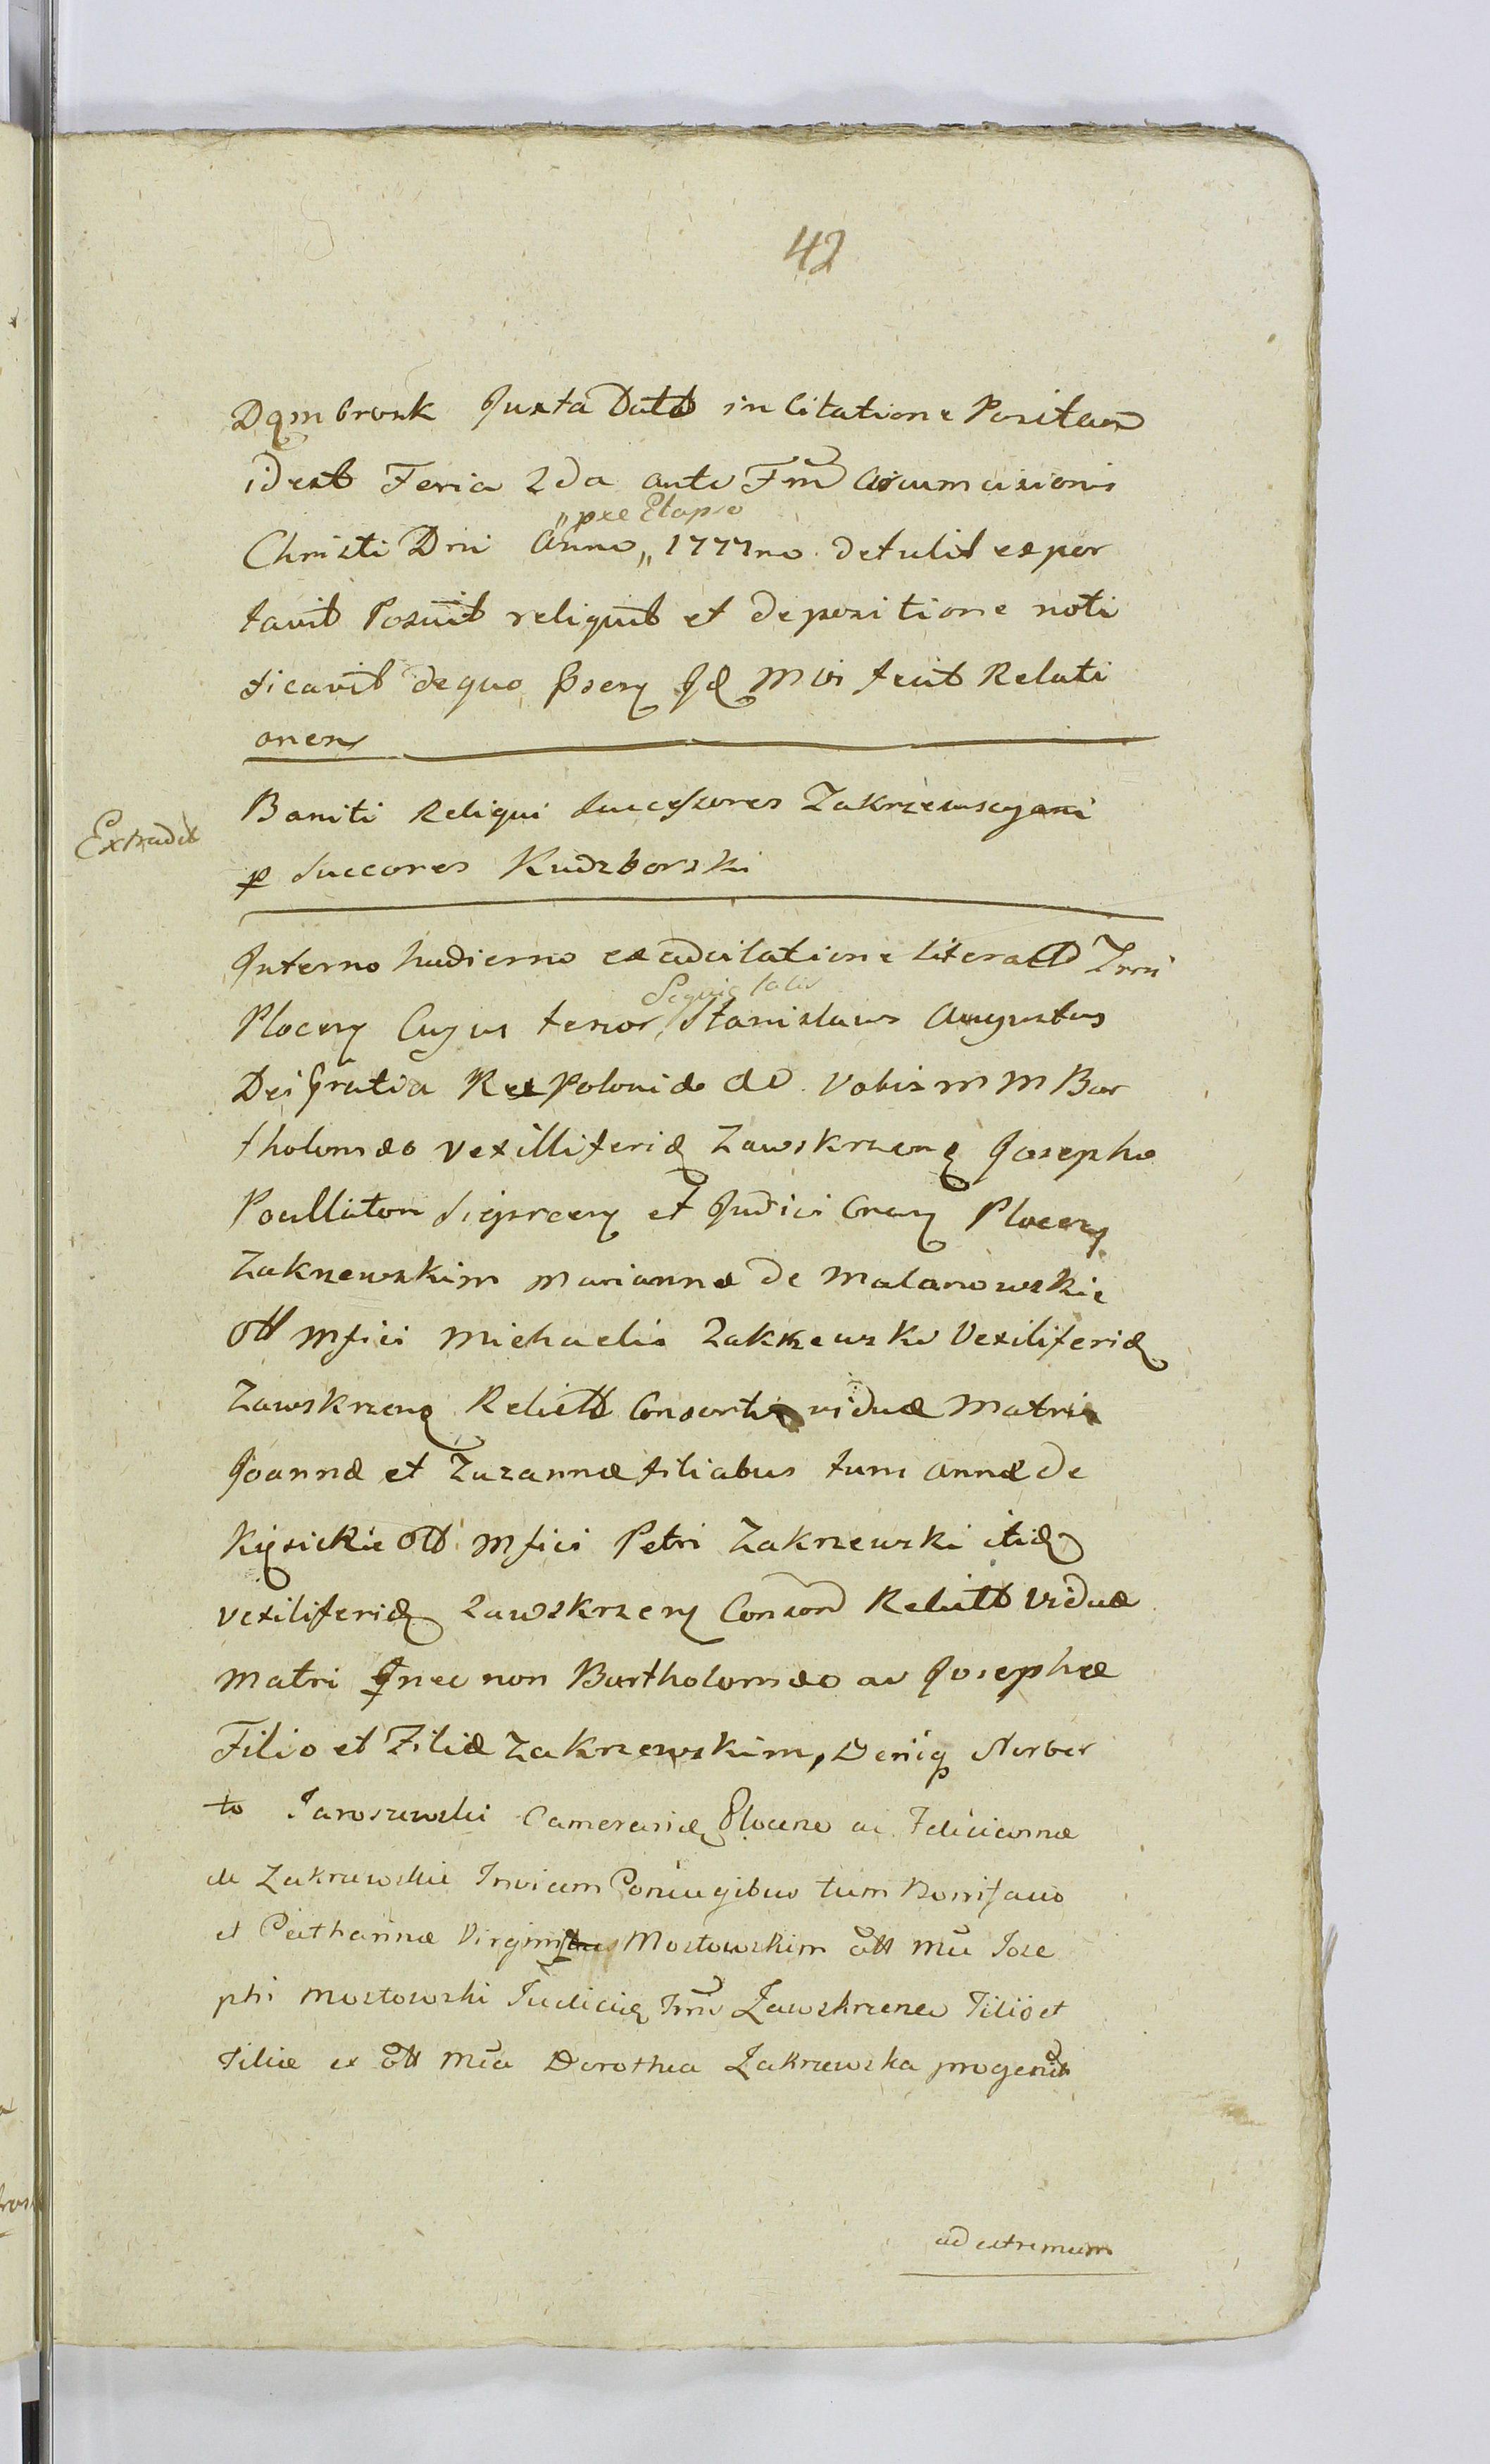 42
Dąmbrosk Juxta Datt in Citatione Positam
idest Feria 2da ante Fm Circumcisionis
"præ Elapso
Christi Dni Anno „ 1777mo detulit expor
tavit Posuit reliquit et depositione noti
ficavit de quo
fecit Relati
onem
Extradit
Baniti Reliqui Successores Zakrzewsciani
p Succores Kudzborski
In termo hodierno ex adcitatione literali Trrii
Sequit talis
Plocen Cujus tenor Stanislaus Augustus
Dei Gratia Rex Poloniæ
Vobis M M Bar
tholomæo Vexilliferidæ Zawskrzen Josepho
Pocillatori Sieprcen et Judici
Plocen
Zakrzewskim Mariannæ de Malanowskie
ott Mfici Michaelis Zakrzewski Vexiliferidæ
Zawskrzen Relictt Consorti viduæ Matri
Joannæ et Zuzannæ filiabus tum Annæ de
Kęsickie ott Mfici Petri Zakrzewski itid
vexiliferidæ Zawskrzen Conson Relictt Viduæ
Matri nec non Bartholomæo ac Josephæ
Filio et Filiæ Zakrzewskim, Deniq Norber
to Jaroszewski Cameraridæ Plocens ac Feliciannæ
de Zakrzewskie Invicem Coniugibus tum Bonifacio
et Catharinæ Virgini Mostowskim ott Mci Jose
phi Mostowski Judicidæ Trris Zawskrzenen Filio et
Filiæ ex ott Mca Dorothea Zakrzewska progenit
ad extremum